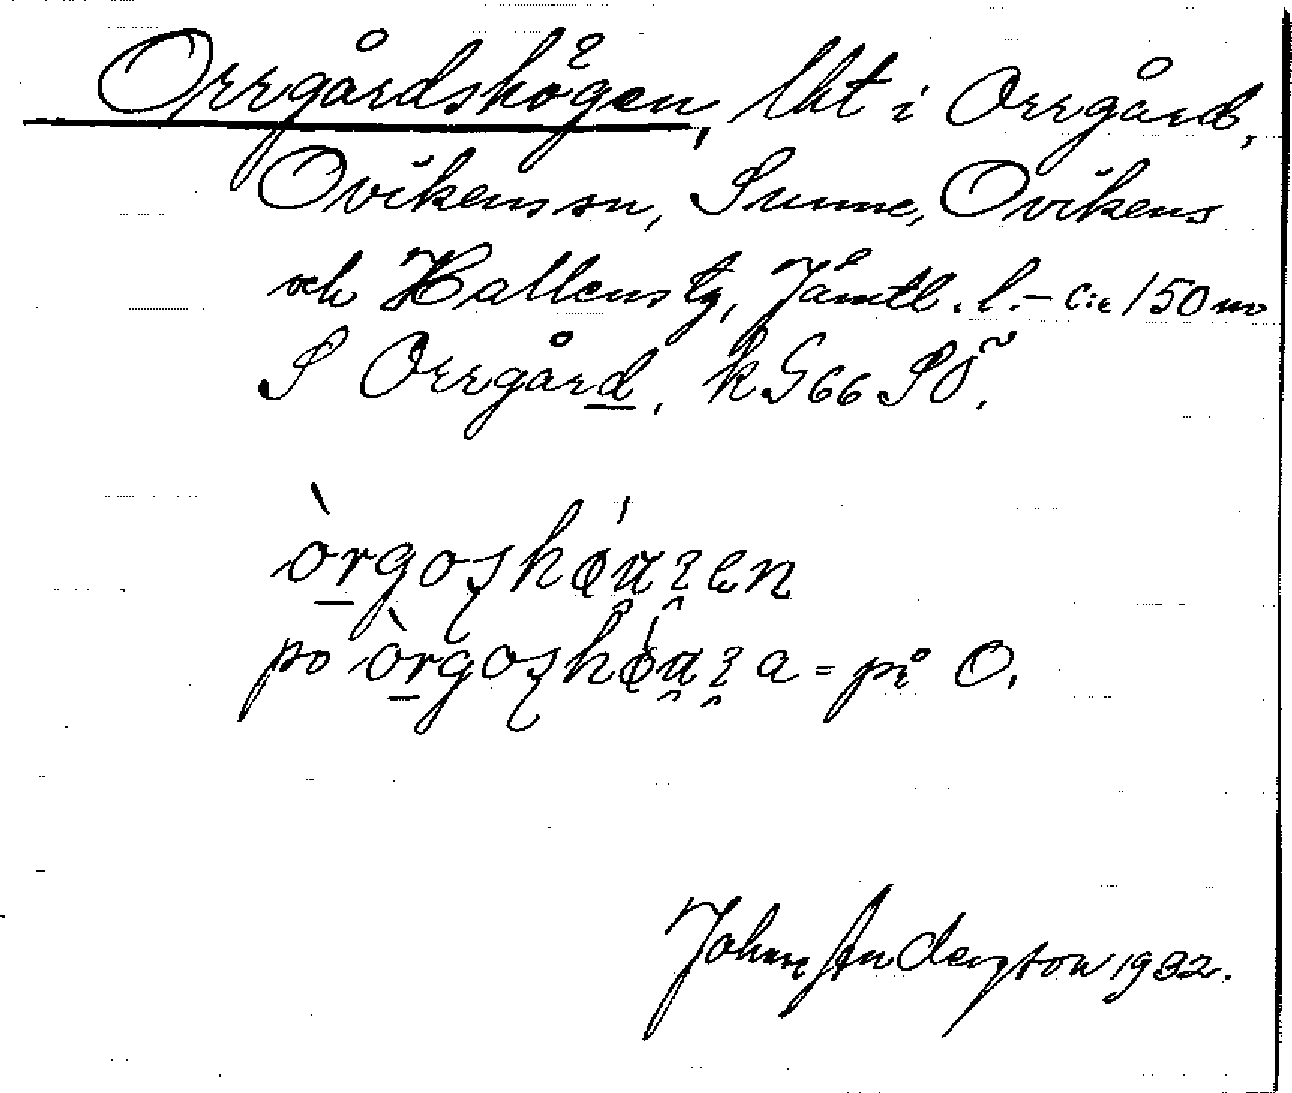 Orrgårdshögen, lkt i Orrgård,
Ovikens sn, Sunne, Ovikens
och Hallens tg, Jämtl. l. – c:a 150 m
S Orrgård, k G66 SÖ.
på O.
John Anderson 1932.